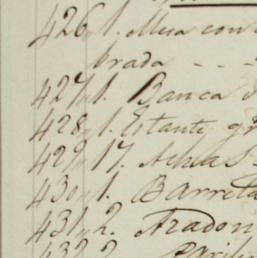 426 1. Mesa con
brada - - -
427 1. Banca
428 1. Estante gr
429 17. Achas -
430 1. Barreta
431 2. Azadon
432 2.